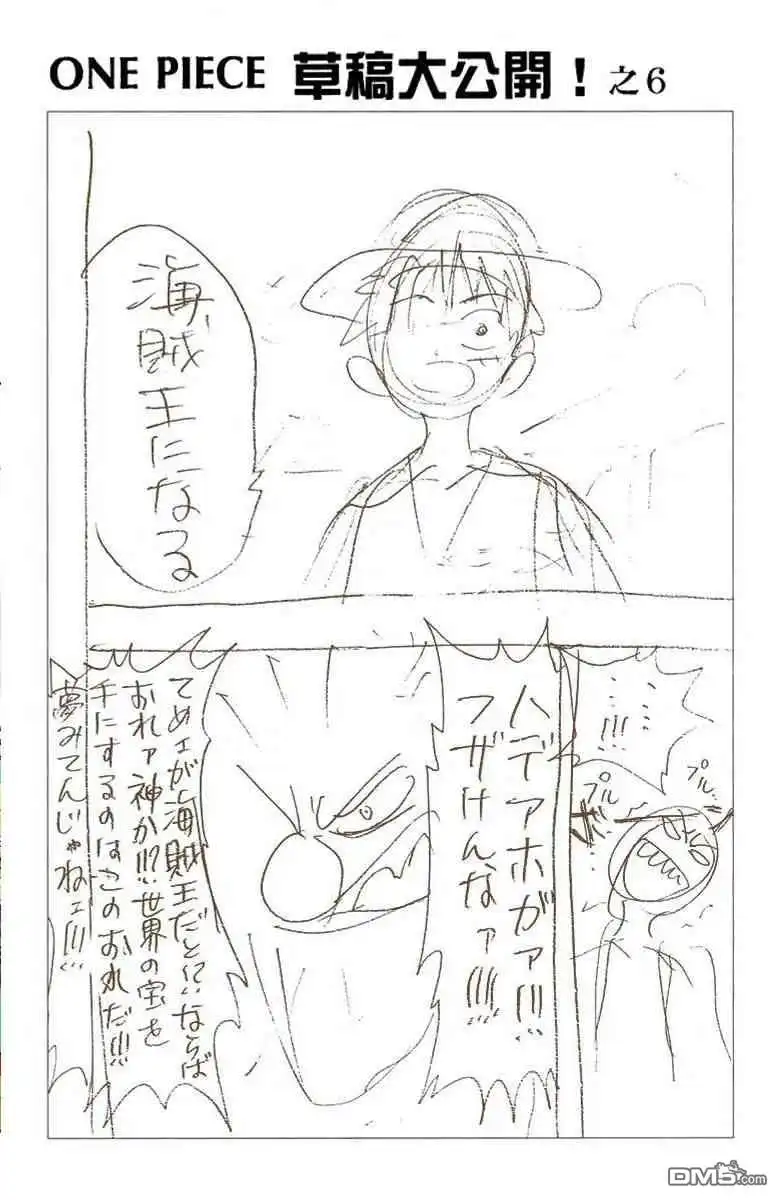 ONE PIECE 草稿大公開！之6
海賊王になる
……!!!
プル
プル
ハデアホがァ!!!
フザけんなァ!!!!
てめェが海賊王だと!?ならば
おれァ神か!!?世界の宝を
手にするのはこのおれだ!!!
夢みてんじゃねェ!!!!
DM5.com